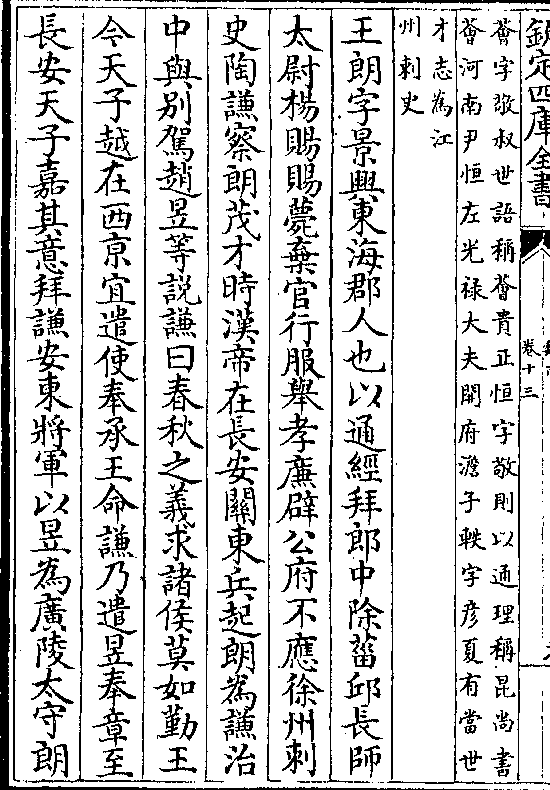 欽定四庫全書
卷十三
薈字敬叔世語稱薈貴正恒字敬則以通理稱昆尚書
薈河南尹恒左光禄大夫開府澹子軼字彦夏有當世
才志為江
州刺史
王朗字景興東海郡人也以通經拜郎中除菑邱長師
太尉楊賜賜薨棄官行服舉孝廉辟公府不應徐州刺
史陶謙察朗茂才時漢帝在長安關東兵起朗為謙治
中與别駕趙昱等説謙曰春秋之義求諸侯莫如勤王
今天子越在西京宜遣使奉承王命謙乃遣昱奉章至
長安天子嘉其意拜謙安東將軍以昱為廣陵太守朗